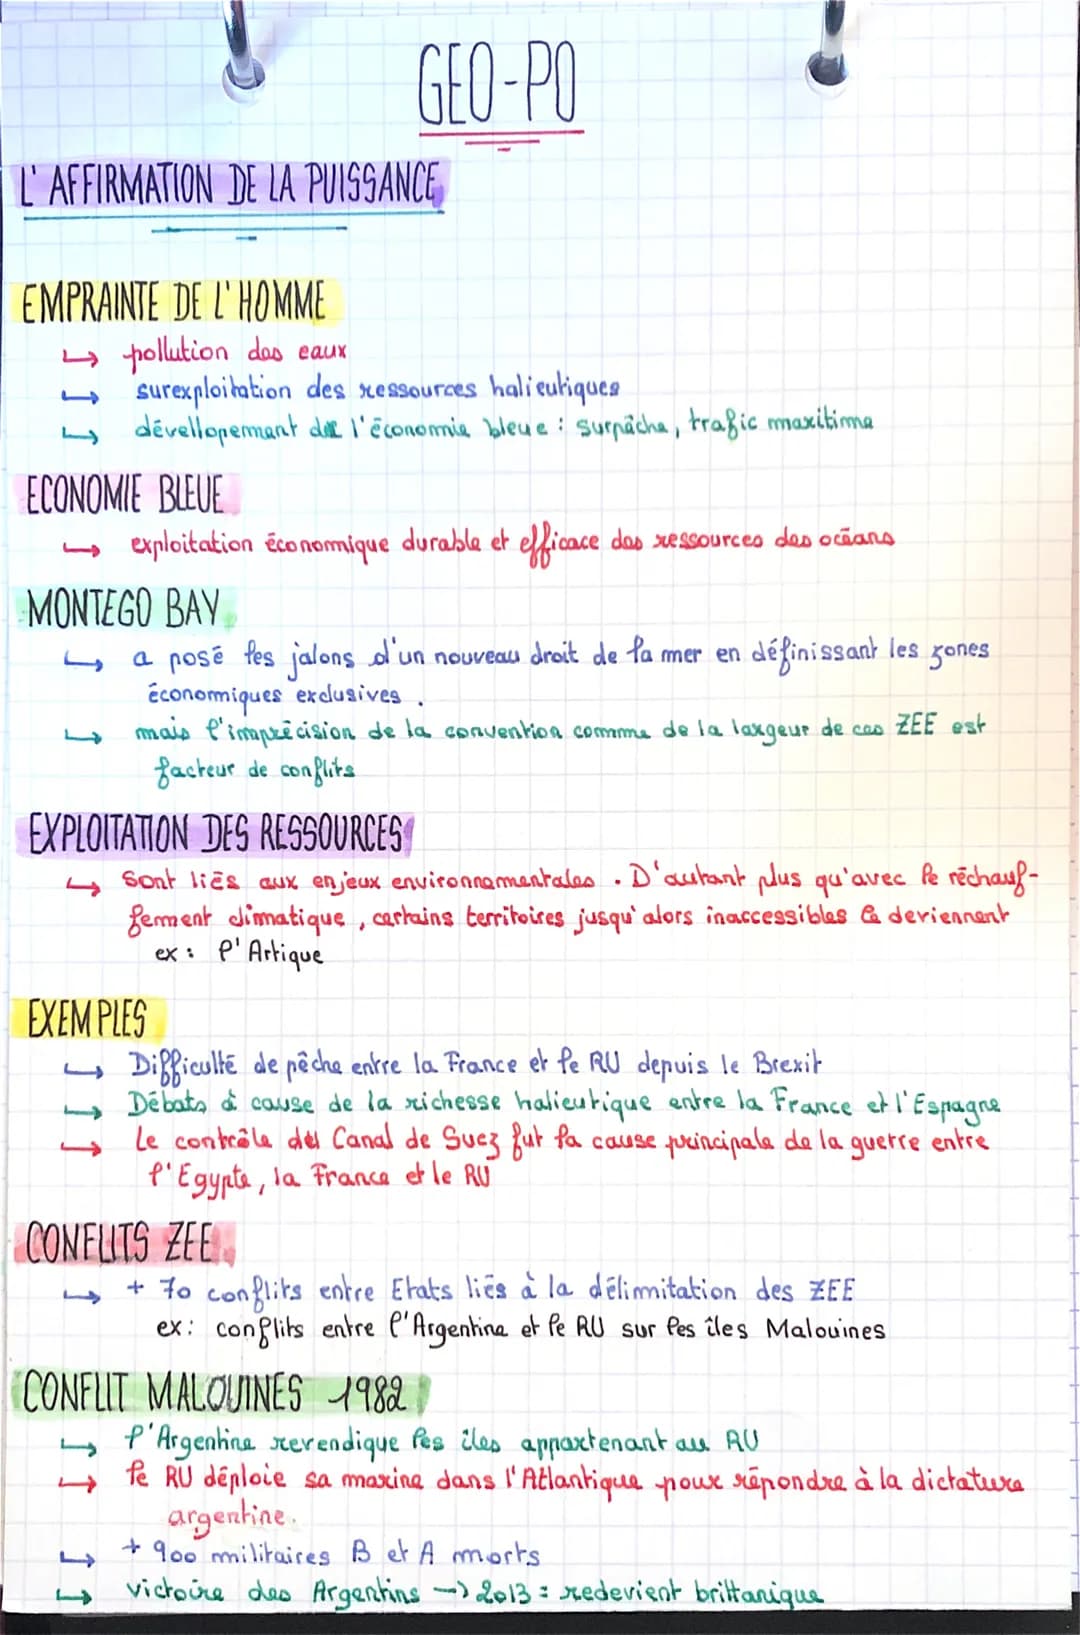 GEO-PO
L'AFFIRMATION DE LA PUISSANCE
EMPRAINTE DE L'HOMME
↳ pollution des eaux
↳ surexploitation des ressources halieutiques
↳ dévellopement de l'économie bleue : surpêche, trafic maritime
ECONOMIE BLEUE
↳ exploitation économique durable et efficace des ressources des océans
MONTEGO BAY
↳ a posé les jalons d'un nouveau droit de la mer en définissant les zones
économiques exclusives.
↳ mais l'imprécision de la convention comme de la largeur de ces ZEE est
facteur de conflits
EXPLOITATION DES RESSOURCES
↳ Sont liés aux enjeux environnementales. D'autant plus qu'avec le réchauf-
fement climatique, certains territoires jusqu'alors inaccessibles le deviennent
ex : l'Artique
EXEMPLES
↳ Difficulté de pêche entre la France et le RU depuis le Brexit
↳ Débats à cause de la richesse halieutique entre la France et l'Espagne
↳ Le contrôle du Canal de Suez fut la cause principale de la guerre entre
l'Egypte, la France et le RU
CONFLITS ZEE
↳ + 70 conflits entre Etats liés à la délimitation des ZEE
ex : conflits entre l'Argentine et le RU sur les îles Malouines
CONFLIT MALOUINES 1982
↳ l'Argentine revendique les îles appartenant au RU
↳ le RU déploie sa marine dans l'Atlantique pour répondre à la dictature
argentine.
↳ + 900 militaires B et A morts
↳ victoire des Argentins → 2013 = redevient brittanique